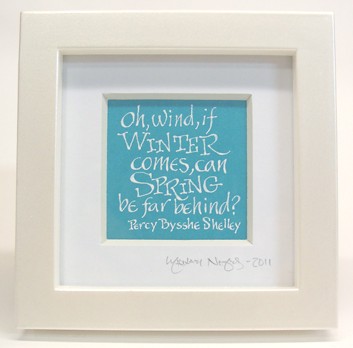 Oh, wind, if
WINTER
comes, can
SPRING
be far behind?
Percy Bysshe Shelley
-2011